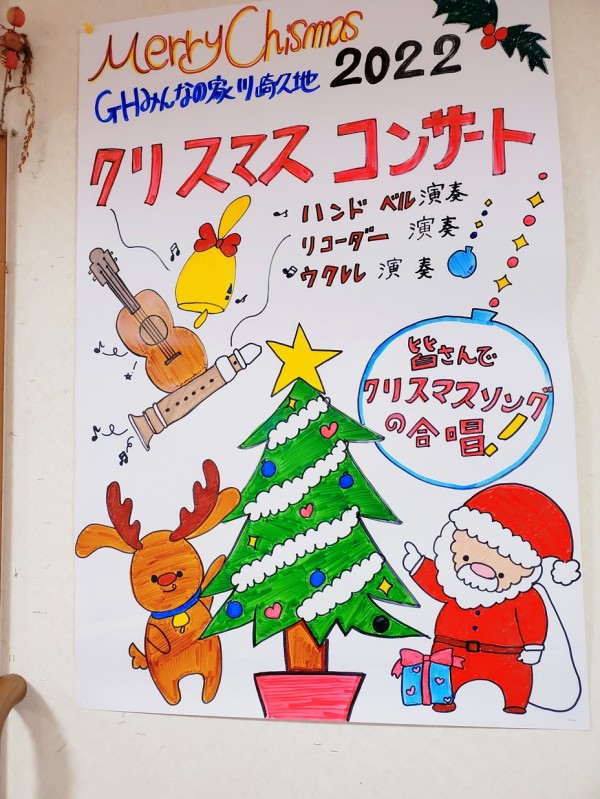 Merry Chismas
2022
GHみんなの家川崎久地
クリスマス コンサート
ハンド ベル演奏
リコーダー 演奏
ウクレレ 演奏
皆さんで
クリスマスソング
の合唱!